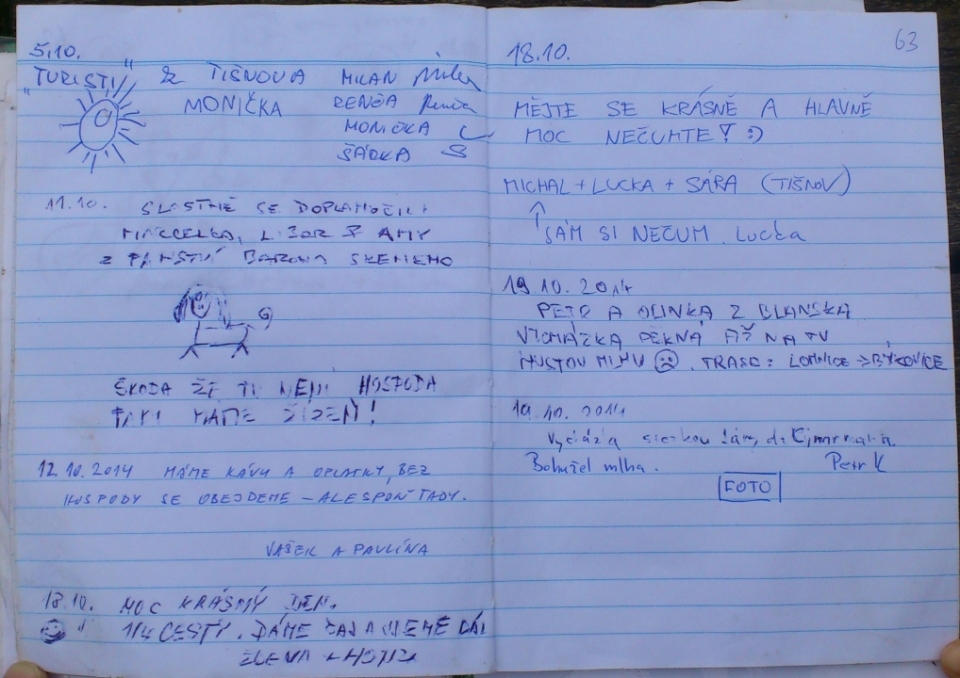 5.10.
"TURISTI" Z TIŠNOVA MILAN Milan
MONIČKA RENČA Renča
MONIČKA
ŠÁRKA
11.10. SE
MARCELKA, LIBOR AMY
Z PANSTVÍ BARONA
ŠKODA ŽE TU NENÍ HOSPODA
MÁME ŽÍZEŇ!
12.10.2014 MÁME KÁVU A OPLATKY, BEZ
HOSPODY SE OBEJDEME - ALESPOŇ TADY.
VAŠEK A PAVLÍNA
18.10. MOC KRÁSNÝ DEN.
1/4 CESTY. DÁME ČAJ A JDEME DÁL
63
18.10.
MĚJTE SE KRÁSNĚ A HLAVNĚ
MOC NEČUMTE! :)
MICHAL + LUCKA + SÁRA (TIŠNOV)
SÁM SI NEČUM. Lucka
19.10.2014
PETR A OLINKA Z BLANSKA
PĚKNÁ AŽ NA TU
HUSTOU MLHU TRASA: LOMNICE -> BÝKOVICE
19.10.2014
Bohužel mlha. Petr K
FOTO